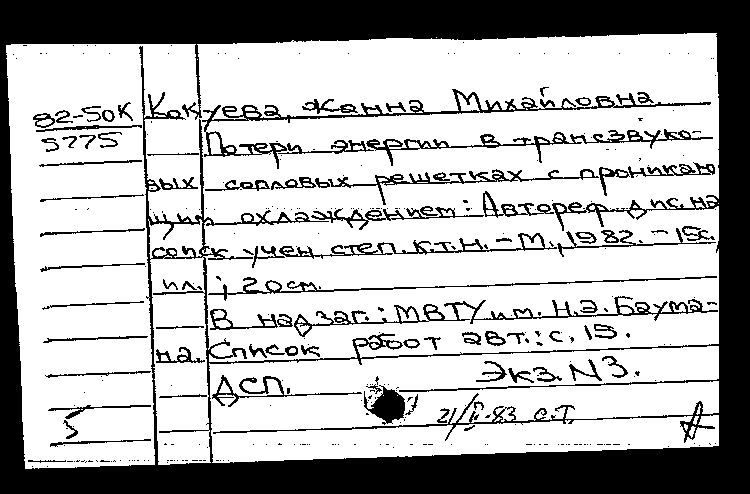 82-5ок Кокуева, Жанна Михайловна.
5775 Потери энергии в трансзвуко-
вых сопловых решетках с проникаю
щим охлаждением: Автореф. дис. на
соиск. учен. степ. к.т.н. - М., 1982. - 15с.,
ил. ; 20см.
В надзаг.: МВТУ им. Н.Э. Баума-
на. Список работ авт.: с. 15.
ДСП. Экз. N3.
5 21/II-83 С.Т.